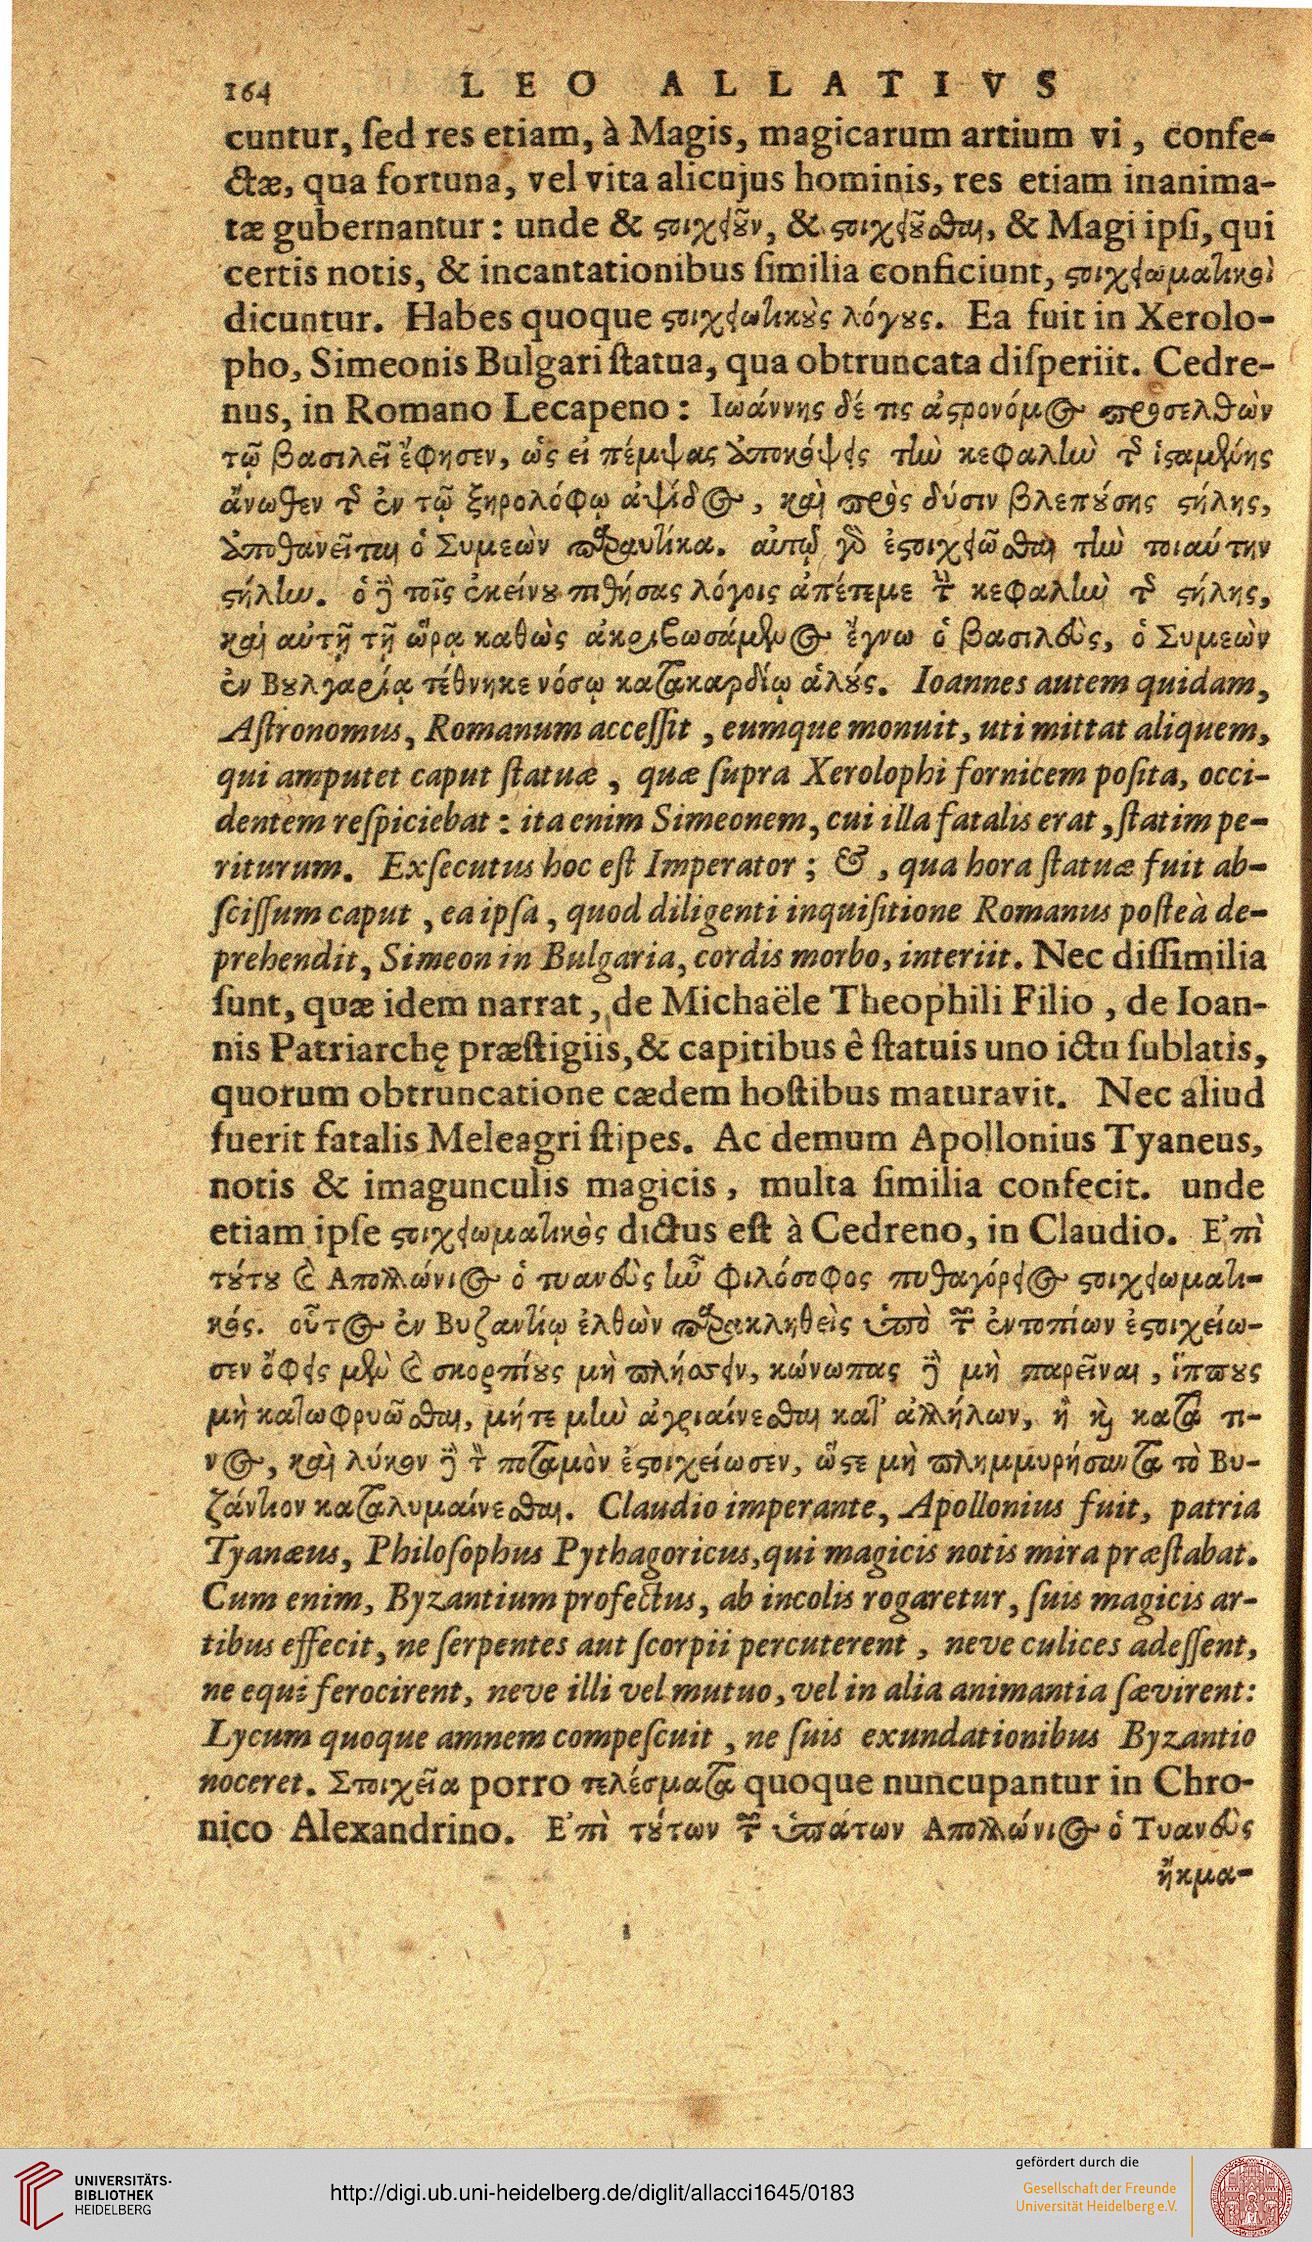 164 LEO ALLATIVS
cuntur, ſed res etiam, à Magis, magicarum artium vi, confe-
ctæ, qua fortuna, vel vita alicujus hominis, res etiam inanima-
tæ gubernantur: unde & ϛοιχειοῦν, & ϛοιχειοῦσθαι, & Magi ipſi, qui
certis notis, & incantationibus ſimilia conficiunt, ϛοιχειωματικοὶ
dicuntur. Habes quoque ϛοιχειωτικοὺς λόγους. Ea fuit in Xerolo-
pho, Simeonis Bulgari ſtatua, qua obtruncata diſperiit. Cedre-
nus, in Romano Lecapeno: Ιωάννης δέ τις ἀϛρονόμος προσελθὼν
τῷ βασιλεῖ ἔφησεν, ὡς εἰ πέμψας ἀποκόψεις τὴν κεφαλὴν τῆς ἱϛαμένης
ἄνωθεν τῆς ἐν τῷ ξηρολόφῳ ἀψίδος, καὶ πρὸς δύσιν βλεπούσης ϛήλης,
ἀποθανεῖται ὁ Συμεὼν παραυτίκα. αὐτῷ γὸ ἐϛοιχειῶσθαι τὴν τοιαύτην
ϛήλην. ὁ δὲ τοῖς ἐκείνου πιθήσας λόγοις ἀπέτεμε τὴν κεφαλὴν τῆς ϛήλης,
καὶ αὐτῇ τῇ ὥρᾳ καθὼς ἀκριβωσάμενος ἔγνω ὁ βασιλεὺς, ὁ Συμεὼν
ἐν Βουλγαρίᾳ τέθνηκε νόσῳ κατακαρδίῳ ἁλούς. Ioannes autem quidam,
Aſtronomus, Romanum acceſſit, eumque monuit, uti mittat aliquem,
qui amputet caput ſtatuæ, quæ ſupra Xerolophi fornicem poſita, occi-
dentem reſpiciebat: ita enim Simeonem, cui illa fatalis erat, ſtatim pe-
riturum. Exſecutus hoc eſt Imperator; &, qua hora ſtatuæ fuit ab-
ſciſſum caput, ea ipſa, quod diligenti inquiſitione Romanus poſteà de-
prehendit, Simeon in Bulgaria, cordis morbo, interiit. Nec diſſimilia
ſunt, quæ idem narrat, de Michaële Theophili Filio, de Ioan-
nis Patriarchę præſtigiis, & capitibus ê ſtatuis uno ictu ſublatis,
quorum obtruncatione cædem hoſtibus maturavit. Nec aliud
fuerit fatalis Meleagri ſtipes. Ac demum Apollonius Tyaneus,
notis & imagunculis magicis, multa ſimilia confecit. unde
etiam ipſe ϛοιχειωματικὸς dictus eſt à Cedreno, in Claudio. Ε᾿πὶ
τούτου καὶ Απολλώνιος ὁ τυανεὺς ἦν φιλόσοφος πυθαγόρειος ϛοιχειωματι-
κός. οὗτος ἐν Βυζαντίῳ ἐλθὼν παρακληθεὶς ὑπὸ τῶν ἐντοπίων ἐϛοιχείω-
σεν ὄφεις μὲν καὶ σκορπίους μὴ πλήσσειν, κώνωπας δὲ μὴ παρεῖναι, ἵππους
μὴ κατωφρυῶσθαι, μήτε μὴν ἀγριαίνεσθαι κατ᾿ ἀλλήλων, ἢ καὶ κατα τι-
νος, καὶ λύκον δὲ τὸν ποταμὸν ἐϛοιχείωσεν, ὥϛε μὴ πλημμυρήσαντα τὸ Βυ-
ζάντιον καταλυμαίνεσθαι. Claudio imperante, Apollonius fuit, patria
Tyanæus, Philoſophus Pythagoricus, qui magicis notis mira præſtabat.
Cum enim, Byzantium profectus, ab incolis rogaretur, ſuis magicis ar-
tibus effecit, ne ſerpentes aut ſcorpii percuterent, neve culices adeſſent,
ne equi ferocirent, neve illi vel mutuo, vel in alia animantia ſævirent:
Lycum quoque amnem compeſcuit, ne ſuis exundationibus Byzantio
noceret. Στοιχεῖα porro τελέσματα quoque nuncupantur in Chro-
nico Alexandrino. Ε᾿πὶ τούτων τῶν ὑπάτων Απολλώνιος ὁ Τυανεὺς
ἤκμα-
UNIVERSITÄTS-
BIBLIOTHEK
HEIDELBERG
http://digi.ub.uni-heidelberg.de/diglit/allacci1645/0183
gefördert durch die
Gesellschaft der Freunde
Universität Heidelberg e.V.